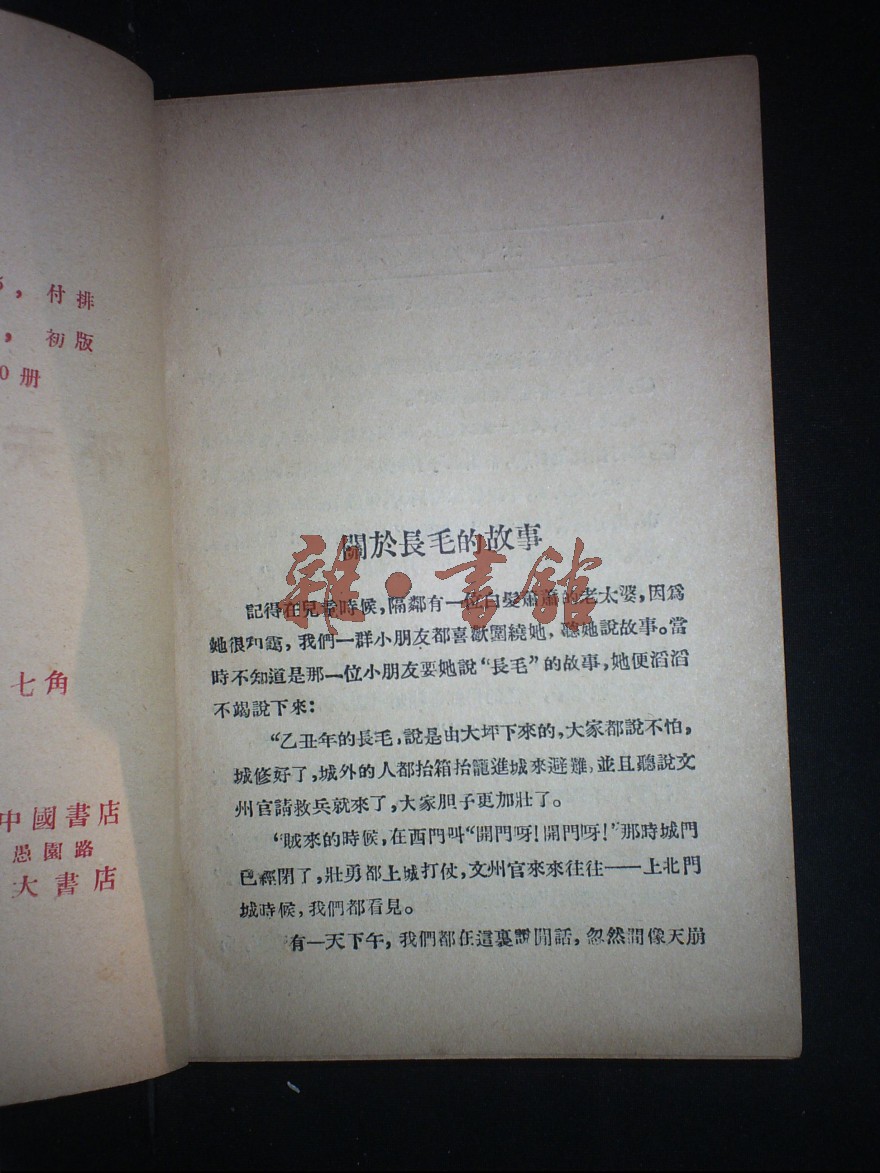 ，付排
，初版
0册
七角
中國書店
愚園路
大書店
關於長毛的故事
雜·書館
記得在兒童時候，隔鄰有一位白髮蕭蕭的老太婆，因爲
她很和靄，我們一群小朋友都喜歡圍繞她，聽她說故事。當
時不知道是那一位小朋友要她說“長毛”的故事，她便滔滔
不竭說下來：
“乙丑年的長毛，說是由大坪下來的，大家都說不怕，
城修好了，城外的人都抬箱抬籠進城來避難，並且聽說文
州官請救兵就來了，大家胆子更加壯了。
“賊來的時候，在西門叫“開門呀！開門呀！”那時城門
已經閉了，壯勇都上城打仗，文州官來來往往——上北門
城時候，我們都看見。
有一天下午，我們都在這裏說閒話，忽然間像天崩